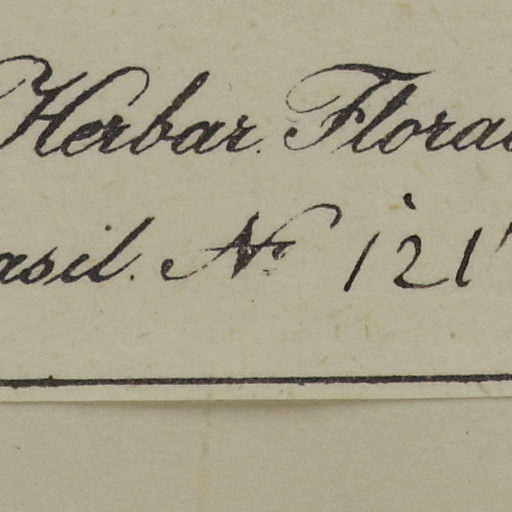 Herbar. Florae
asil. No 121